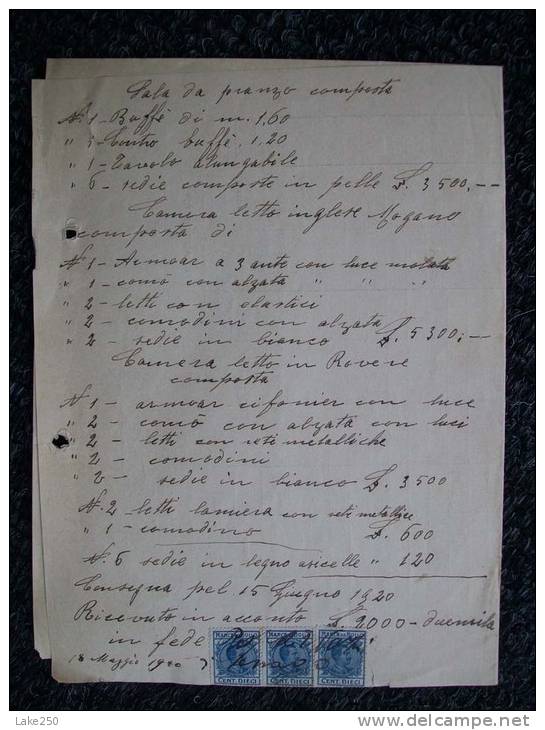 Sala da pranzo composta
N. 1 - Buffè di m. 1,60
" 1 - Contro buffè 1,20
" 1 - Tavolo alungabile
" 6 - sedie composte in pelle £. 3500,--
Camera letto inglese Mogano
composta di
N. 1 - Armoar a 3 ante con luce molata
" 1 - comò con alzata " " "
" 2 - letti con elastici
" 2 - comodini con alzata
" 2 - sedie in bianco £. 5300,--
Camera letto in Rovere
composta
N. 1 - armoar cifonier con luce
" 2 - comò con alzata con luci
" 2 - letti con reti metalliche
" 2 - comodini
" 2 - sedie in bianco £. 3500
N. 2 letti lamiera con reti metallice
" 1 - comodino £. 600
N. 6 sedie in legno " 120
Consegna pel 15 Giugno 1920
Ricevuto in acconto £. 2000 - duemila
in fede
18 Maggio 1920
MARCA DA BOLLO MARCA DA BOLLO MARCA DA BOLLO
CENT. DIECI CENT. DIECI CENT. DIECI
Lake250
www.delcampe.net